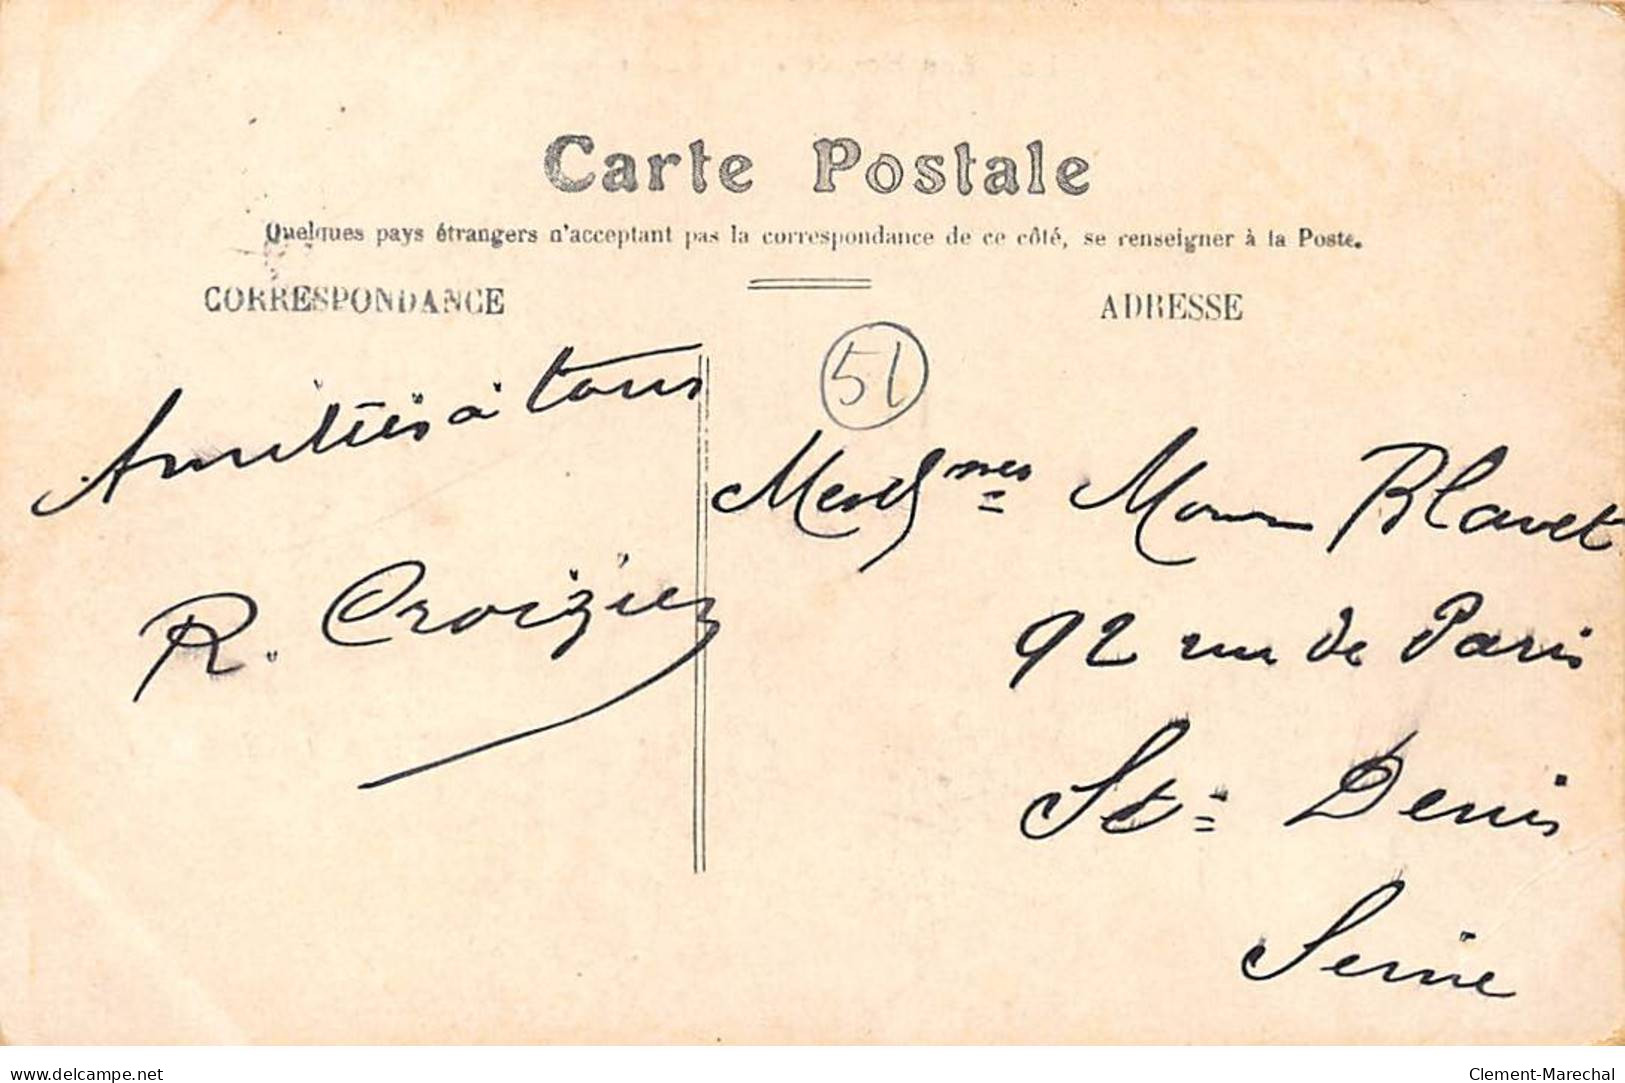 Carte Postale
Quelques pays étrangers n'acceptant pas la correspondance de ce côté, se renseigner à la Poste.
CORRESPONDANCE
ADRESSE
51
Amitiés à tous
R. Croizier
Mesdmes Blavet
92 rue de Paris
St Denis
Seine
www.delcampe.net
Clement-Marechal